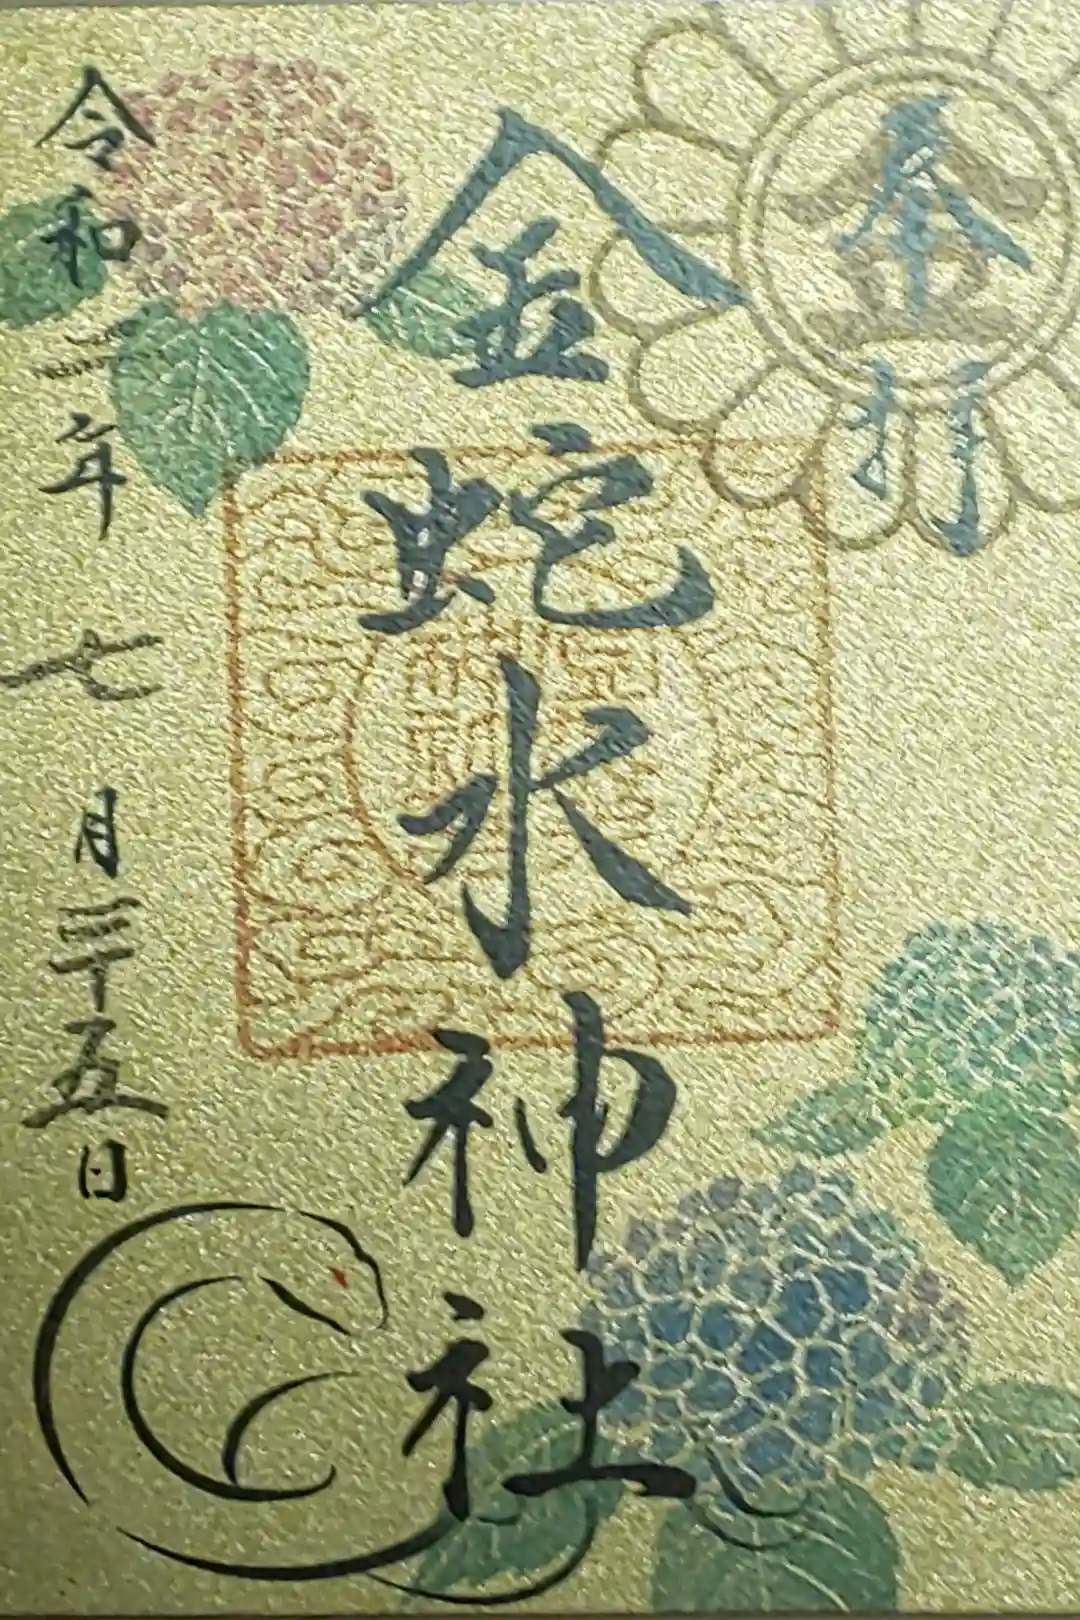 奉拝
金蛇水神社
令和三年七月二十五日